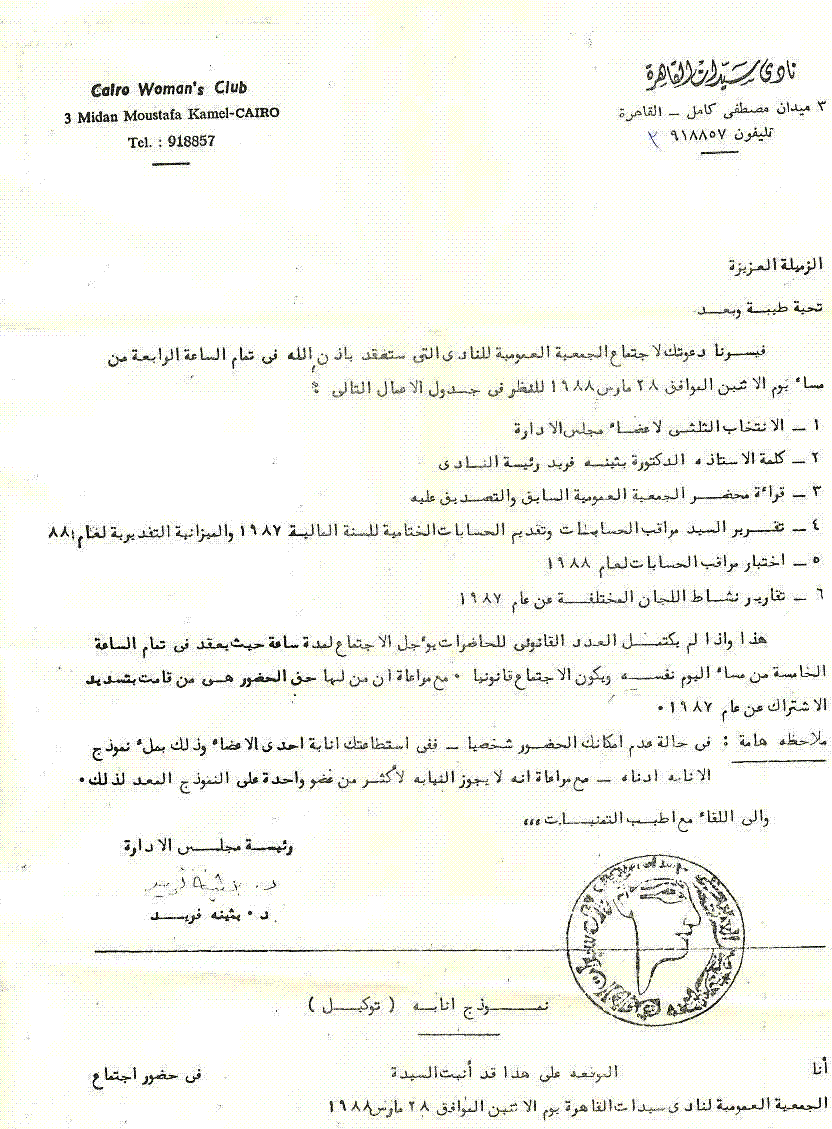 Cairo Woman's Club
3 Midan Moustafa Kamel-CAIRO
Tel. : 918857
نادى سيدات القاهرة
٣ ميدان مصطفى كامل – القاهرة
تليفون ٩١٨٨٥٧
الزميلة العزيزة
تحية طيبة وبعد
فيسرنا دعوتك لاجتماع الجمعية العمومية للنادى التى ستعقد باذن الله فى تمام الساعة الرابعة من
مساء يوم الاثنين الموافق ٢٨ مارس ١٩٨٨ للنظر فى جدول الاعمال التالى :
١ – الانتخاب الثلثى لاعضاء مجلس الادارة
٢ – كلمة الاستاذه الدكتورة بثينه فريد رئيسة النادى
٣ – قراءة محضر الجمعية العمومية السابق والتصديق عليه
٤ – تقرير السيد مراقب الحسابات وتقديم الحسابات الختامية للسنة المالية ١٩٨٧ والميزانية التقديرية لعام ٨٨
٥ – اختيار مراقب الحسابات لعام ١٩٨٨
٦ – تقارير نشاط اللجان المختلفة عن عام ١٩٨٧
هذا واذا لم يكتمل العدد القانونى للحاضرات يؤجل الاجتماع لمدة ساعة حيث يعقد فى تمام الساعة
الخامسة من مساء اليوم نفسه ويكون الاجتماع قانونيا ٠ مع مراعاة ان من لها حق الحضور هى من قامت بتسديد
الاشتراك عن عام ١٩٨٧ ٠
ملاحظه هامة : فى حالة عدم امكانك الحضور شخصيا – ففى استطاعتك انابة احدى الاعضاء وذلك بملء نموذج
الانابه ادناه – مع مراعاة انه لا يجوز النيابه لأكثر من عضو واحدة على النموذج المعد لذلك ٠
والى اللقاء مع اطيب التمنيات ,,,
رئيسة مجلس الادارة
د. بثينه فريد
د ٠ بثينه فريد
نموذج انابه ( توكيل )
أنا الموقعه على هذا قد أنبت السيدة فى حضور اجتماع
الجمعية العمومية لنادى سيدات القاهرة يوم الاثنين الموافق ٢٨ مارس ١٩٨٨